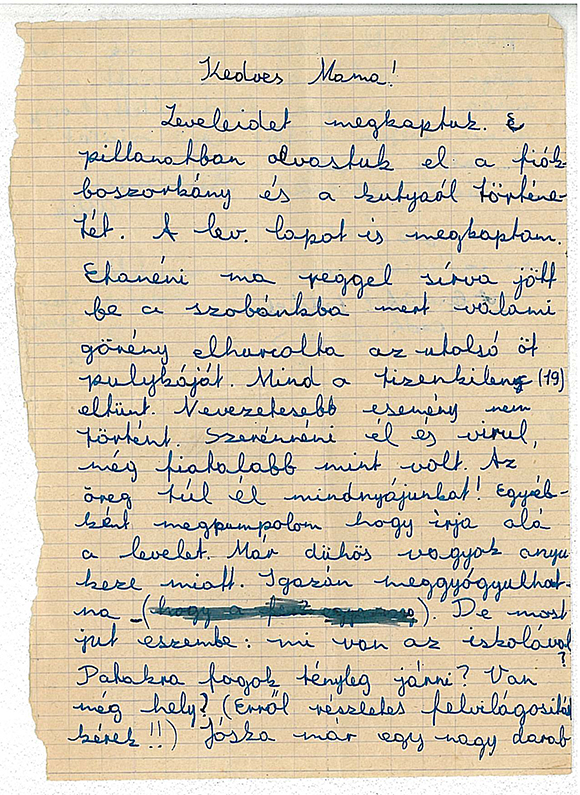 Kedves Mama!
Leveleidet megkaptuk. E
pillanatban olvastuk el a fiók-
boszorkány és a kutyaól történe-
tét. A lev. lapot is megkaptam.
Ekanéni ma reggel sírva jött
be a szobánkba mert valami
görény elhurcolta az utolsó öt
pulykáját. Mind a tizenkilenc (19)
eltünt. Nevezetesebb esemény nem
történt. Szerénnéni él és virul,
még fiatalabb mint volt. Az
öreg túl él mindnyájunkat! Egyéb-
ként megpumpolom hogy írja alá
a levelet. Már dühös vagyok anyu
keze miatt. Igazán meggyógyulhat-
na -(hogy a). De most
jut eszembe: mi van az iskolával?
Patakra fogok tényleg járni? Van
még hely? (Erről részletes felvilágosítást
kérek!!) Jóska már egy nagy darab